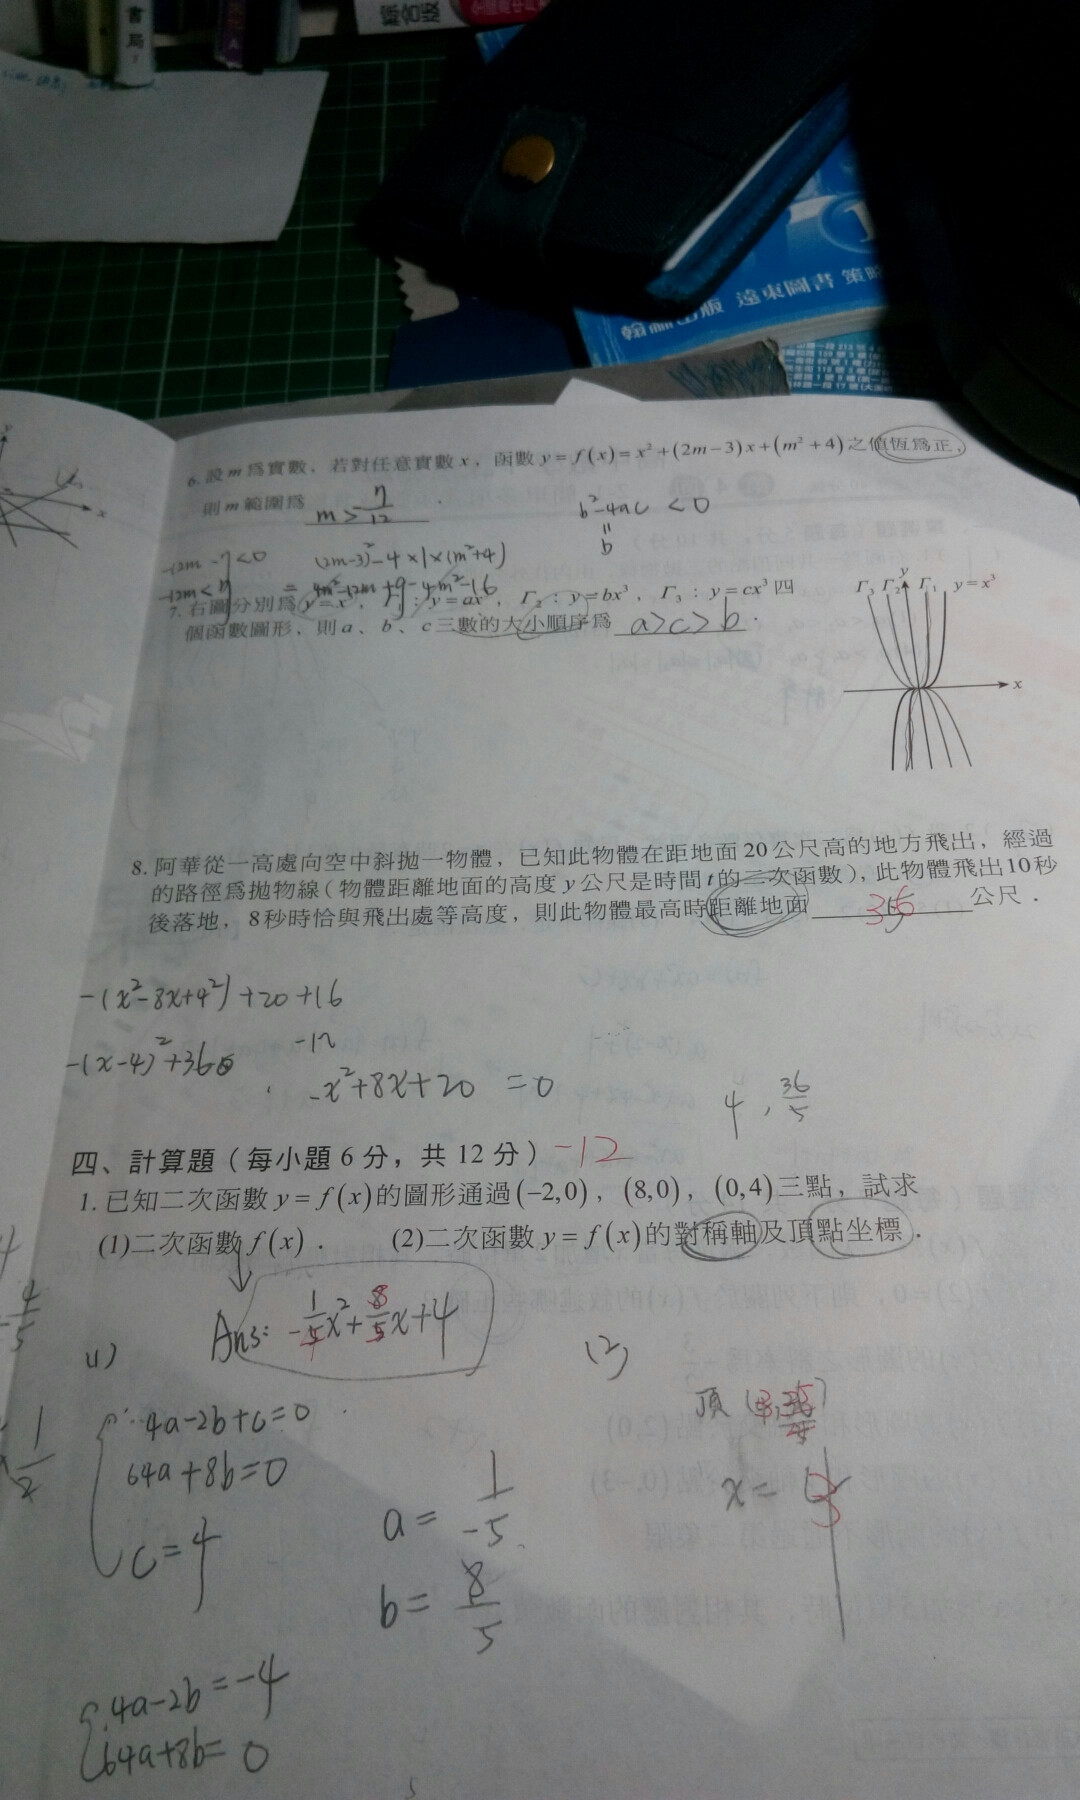 書局
綜合版
翰林出版 遠東圖書
6. 設m為實數，若對任意實數x，函數y=f(x)=x²+(2m−3)x+(m²+4)之值恆為正，
則m範圍為 m>7/12 .
b²−4ac <0
−12m−7<0 (2m−3)²−4×1×(m²+4)
−12m<7 = 4m²−12m+9−4m²−16
7. 右圖分別為y=x³，Γ₁：y=ax³，Γ₂：y=bx³，Γ₃：y=cx³四
個函數圖形，則a、b、c三數的大小順序為 a>c>b .
Γ₃ Γ₂ y Γ₁ y=x³
x
8. 阿華從一高處向空中斜拋一物體，已知此物體在距地面20公尺高的地方飛出，經過
的路徑為拋物線（物體距離地面的高度y公尺是時間t的二次函數），此物體飛出10秒
後落地，8秒時恰與飛出處等高度，則此物體最高時距離地面 36 公尺．
−(x²−8x+4²)+20+16
−(x−4)²+36
−x²+8x+20 =0
4, 36/5
四、計算題（每小題6分，共12分） −12
1. 已知二次函數y=f(x)的圖形通過(−2,0)，(8,0)，(0,4)三點，試求
(1)二次函數f(x)． (2)二次函數y=f(x)的對稱軸及頂點坐標．
Ans: −1/5x²+8/5x+4
(1) (2)
4a−2b+c=0
64a+8b=0
c=4
a= 1/−5
b= 8/5
x=
4a−2b=−4
64a+8b=0